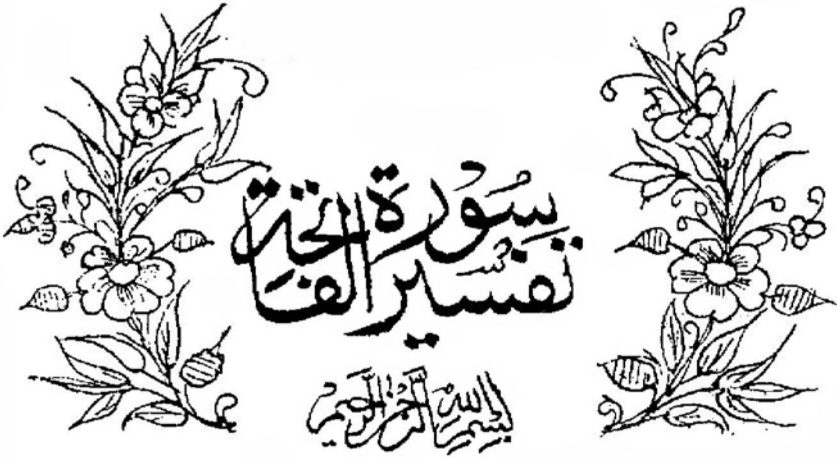 تفسير سورة الفاتحة
بسم الله الرحمن الرحيم